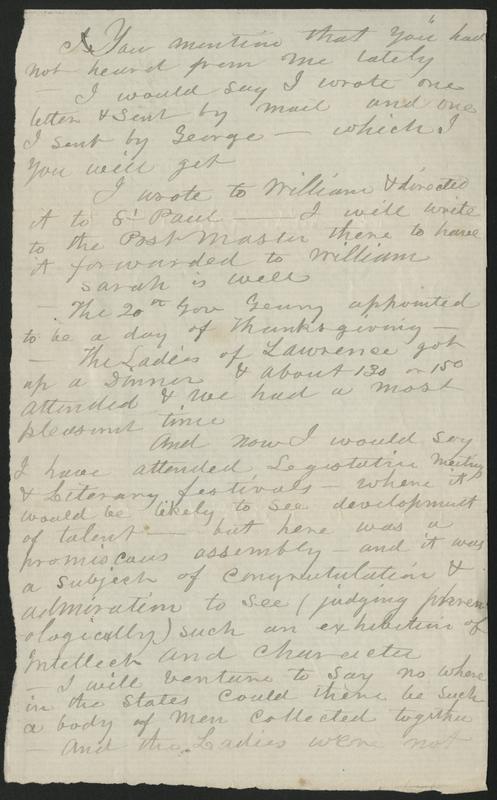 You mention that "you had
not heard from me lately
I would say I wrote one
letter & sent by mail and one
I sent by George — which I
you will get
I wrote to William & directed
it to St Paul — I will write
to the Post Master there to have
it forwarded to William
Sarah is well
— The 20th Gov Geary appointed
to be a day of Thanksgiving —
— The Ladies of Lawrence got
up a Dinner & about 130 or 150
attended & we had a most
pleasant time
And now I would say
I have attended Legislative Meetings
& Literary festivals — where it
would be likely to see development
of talent — but here was a
promiscous assembly — and it was
a subject of congratulation &
admiration to see (judging phren
ologically) such an exhibition of
Intellect and Character
— I will venture to say no where
in the States could there be such
a body of Men collected together
— And the Ladies were not